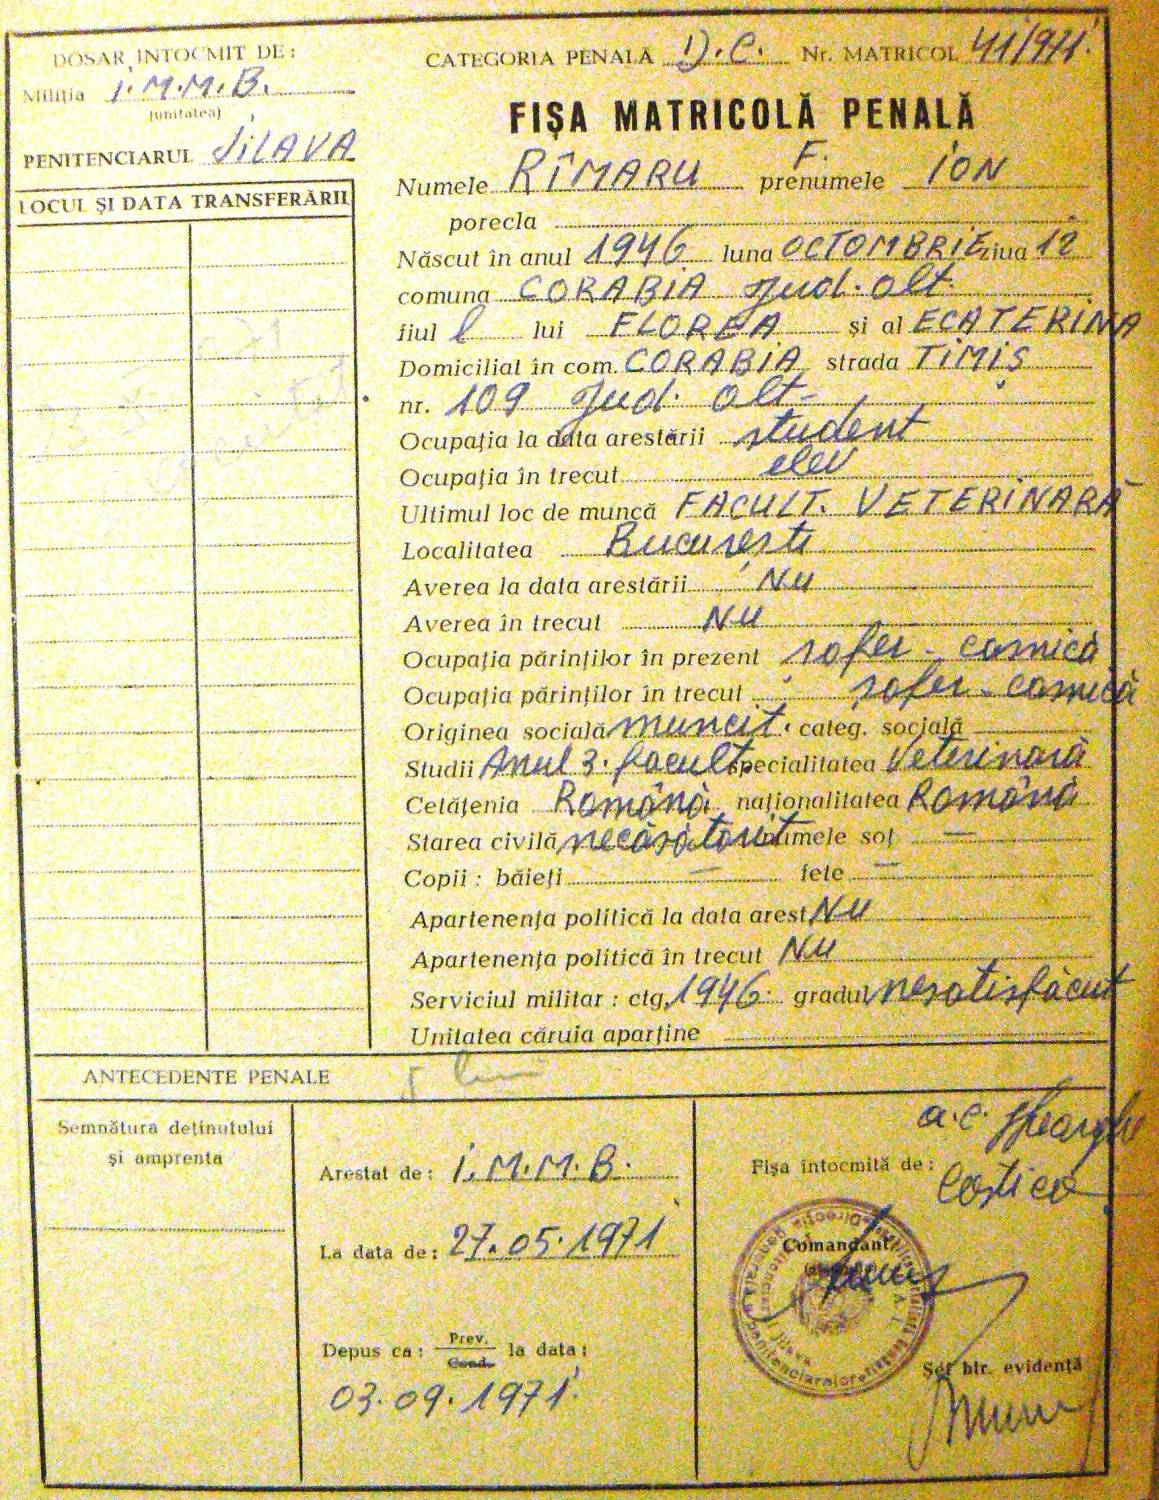 DOSAR INTOCMIT DE:
Miliția I.M.M.B.
(unitatea)
PENITENCIARUL JILAVA
LOCUL ȘI DATA TRANSFERĂRII
CATEGORIA PENALĂ D.C. Nr. MATRICOL 41/971.
FIȘA MATRICOLĂ PENALĂ
Numele RÎMARU F. prenumele ION
porecla
Născut în anul 1946 luna OCTOMBRIE ziua 12
comuna CORABIA Jud. Olt.
fiul l lui FLOREA și al ECATERINA
Domiciliat în com. CORABIA strada TIMIȘ
nr. 109 Jud. Olt-
Ocupația la data arestării student
Ocupația în trecut elev
Ultimul loc de muncă FACULT. VETERINARĂ
Localitatea București
Averea la data arestării NU
Averea în trecut NU
Ocupația părinților în prezent șofer - casnică
Ocupația părinților în trecut șofer - casnică
Originea socială muncit. categ. socială
Studii Anul 3. facult. specialitatea Veterinară
Cetățenia Română naționalitatea Română
Starea civilă necăsătorit numele soț —
Copii: băieți — fete —
Apartenența politică la data arest NU
Apartenența politică în trecut NU
Serviciul militar: ctg. 1946. gradul nesatisfăcut
Unitatea căruia aparține
ANTECEDENTE PENALE
Semnătura deținutului
și amprenta
Arestat de: I.M.M.B.
La data de: 27.05.1971
Depus ca: Prev. Cond. la data:
03.09.1971.
a.c. Gheorghe
Fișa întocmită de: Costica
Comandant
Șef bir. evidență